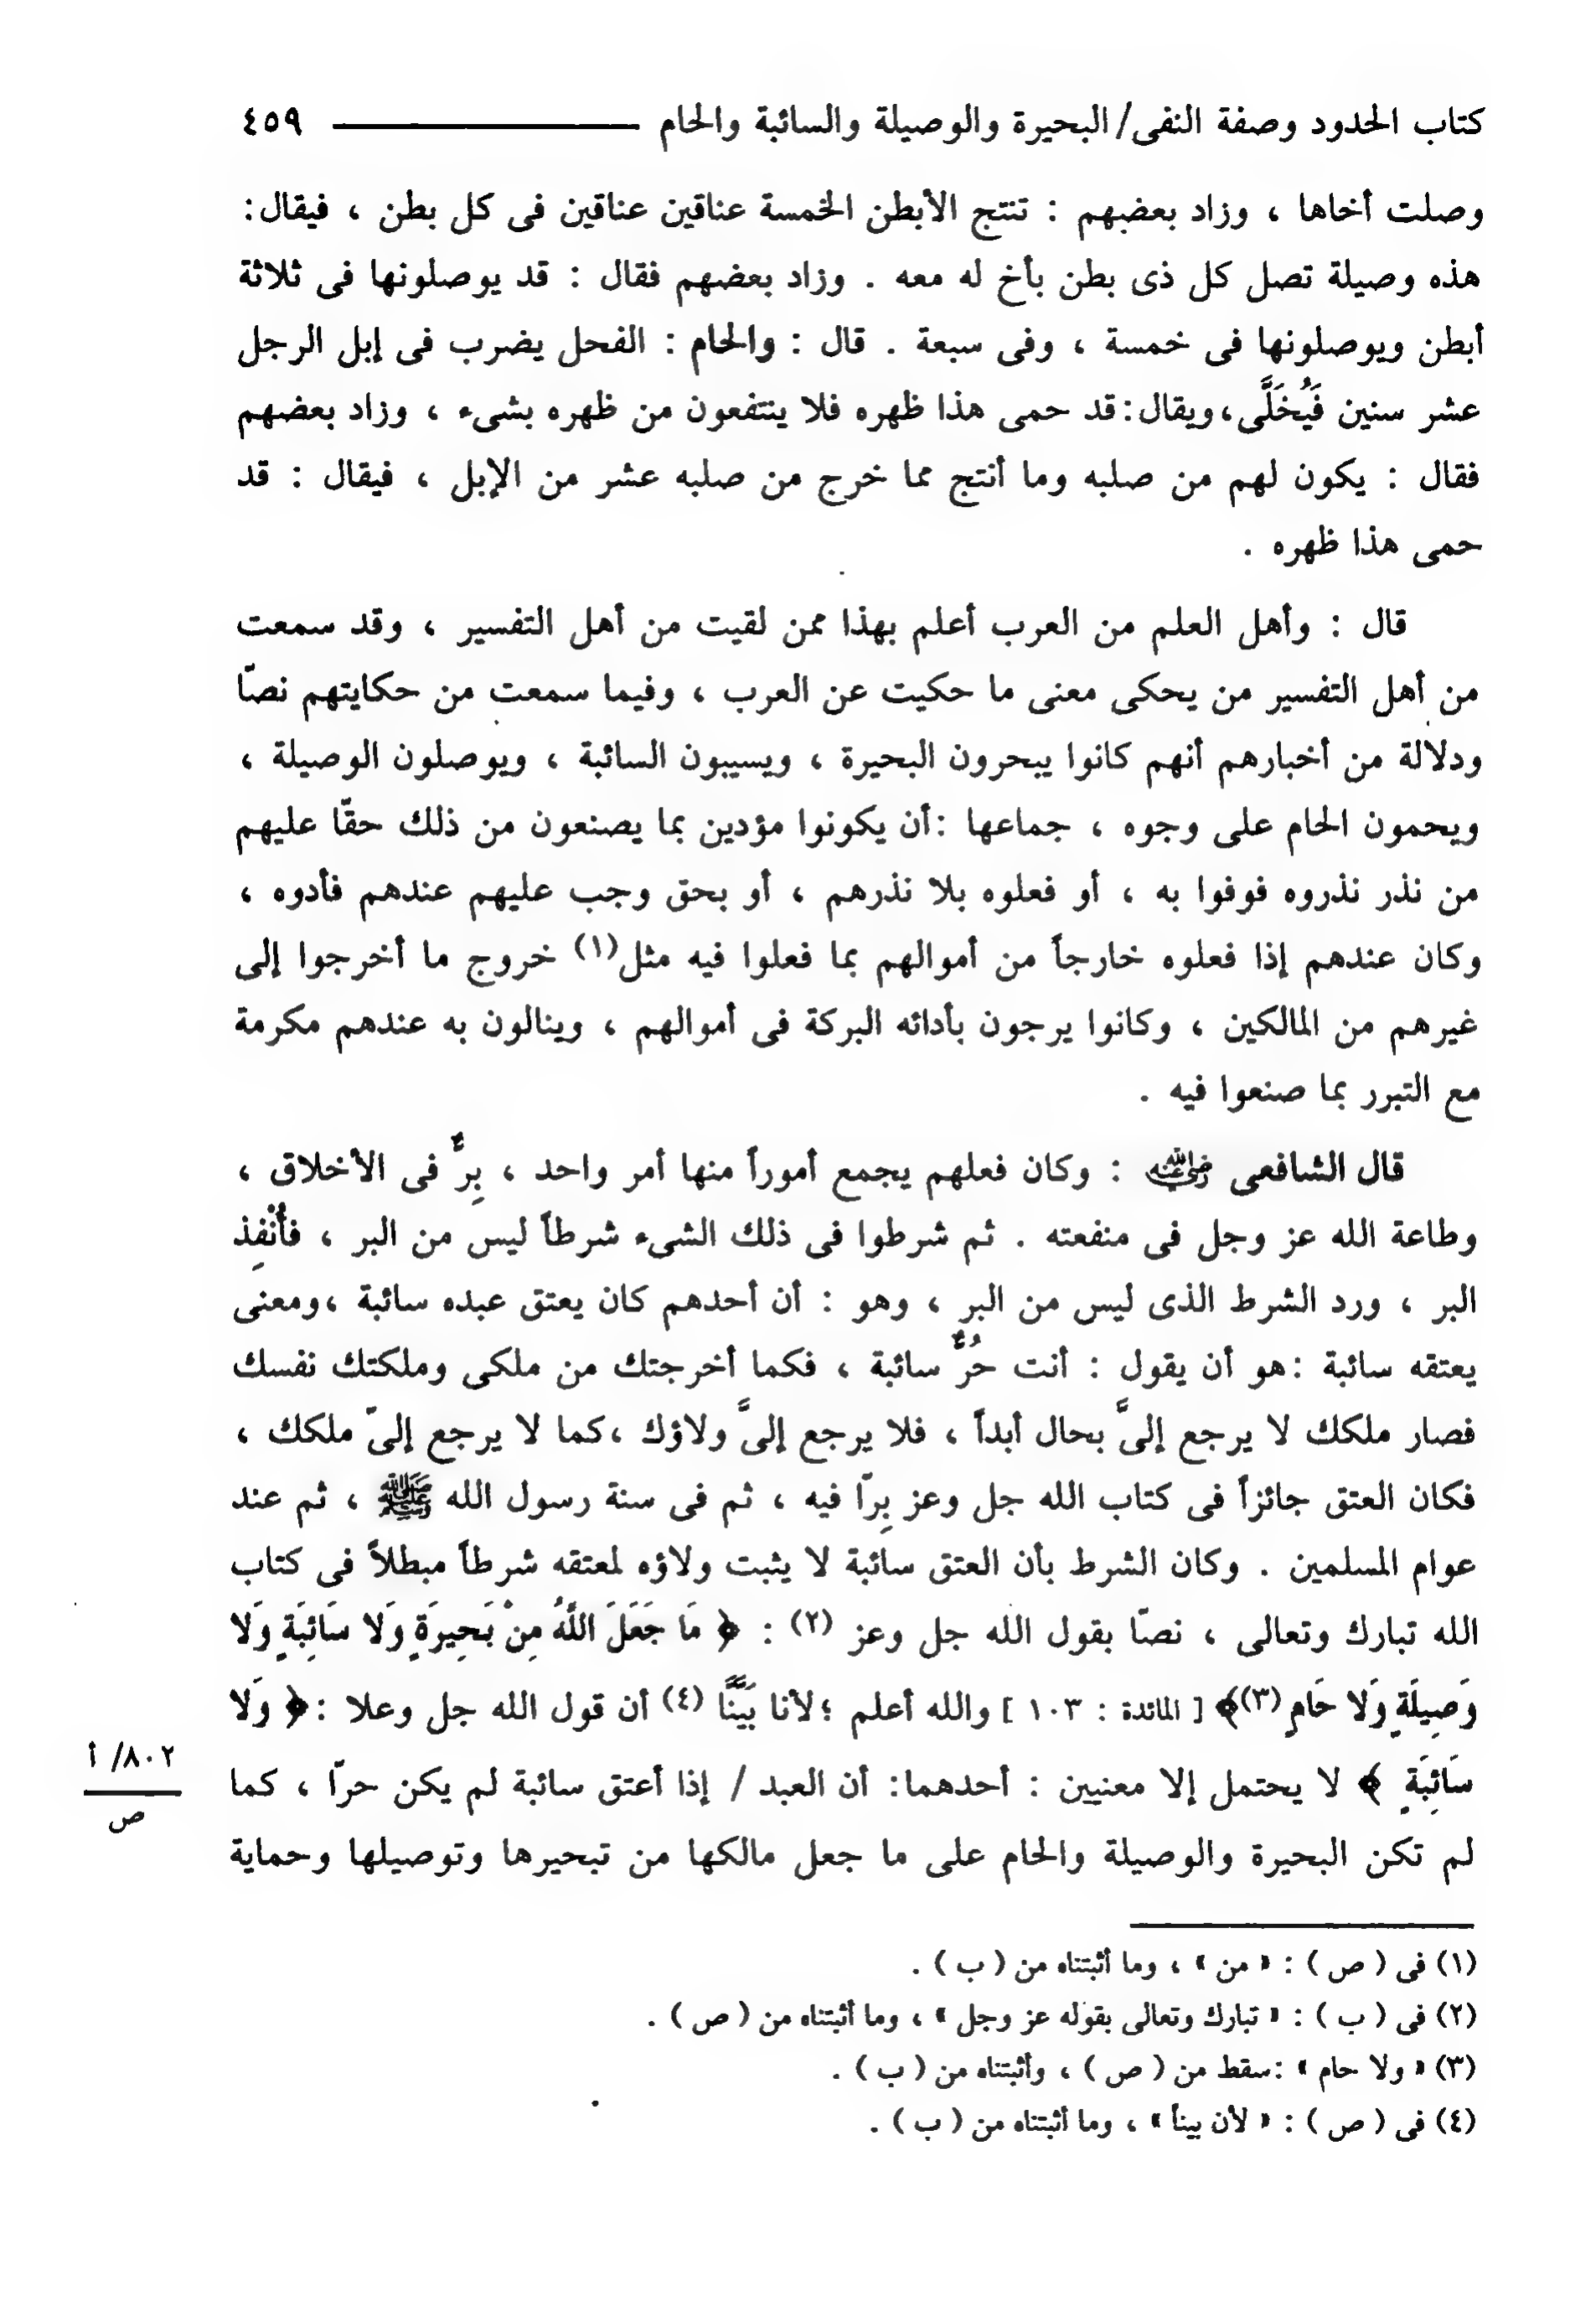 كتاب الحدود وصفة النفى/ البحيرة والوصيلة والسائبة والحام ٤٥٩
وصلت أخاها ، وزاد بعضهم : تنتج الأبطن الخمسة عناقين عناقين فى كل بطن ، فيقال:
هذه وصيلة تصل كل ذى بطن بأخ له معه . وزاد بعضهم فقال : قد يوصلونها فى ثلاثة
أبطن ويوصلونها فى خمسة ، وفى سبعة . قال : والحام : الفحل يضرب فى إبل الرجل
عشر سنين فَيُخَلَّى، ويقال: قد حمى هذا ظهره فلا ينتفعون من ظهره بشىء ، وزاد بعضهم
فقال : يكون لهم من صلبه وما أنتج مما خرج من صلبه عشر من الإبل ، فيقال : قد
حمى هذا ظهره .
قال : وأهل العلم من العرب أعلم بهذا ممن لقيت من أهل التفسير ، وقد سمعت
من أهل التفسير من يحكى معنى ما حكيت عن العرب ، وفيما سمعت من حكايتهم نصّا
ودلالة من أخبارهم أنهم كانوا يبحرون البحيرة ، ويسيبون السائبة ، ويوصلون الوصيلة ،
ويحمون الحام على وجوه ، جماعها :أن يكونوا مؤدين بما يصنعون من ذلك حقّا عليهم
من نذر نذروه فوفوا به ، أو فعلوه بلا نذرهم ، أو بحق وجب عليهم عندهم فأدوه ،
وكان عندهم إذا فعلوه خارجاً من أموالهم بما فعلوا فيه مثل(١) خروج ما أخرجوا إلى
غيرهم من المالكين ، وكانوا يرجون بأدائه البركة فى أموالهم ، وينالون به عندهم مكرمة
مع التبرر بما صنعوا فيه .
قال الشافعى رضي الله عنه : وكان فعلهم يجمع أموراً منها أمر واحد ، بِرٌّ فى الأخلاق ،
وطاعة الله عز وجل فى منفعته . ثم شرطوا فى ذلك الشىء شرطاً ليس من البر ، فأُنْفِذ
البر ، ورد الشرط الذى ليس من البر ، وهو : أن أحدهم كان يعتق عبده سائبة ،ومعنى
يعتقه سائبة :هو أن يقول : أنت حُرٌّ سائبة ، فكما أخرجتك من ملكى وملكتك نفسك
فصار ملكك لا يرجع إلىَّ بحال أبداً ، فلا يرجع إلىَّ ولاؤك ،كما لا يرجع إلىّ ملكك ،
فكان العتق جائزاً فى كتاب الله جل وعز بِرّا فيه ، ثم فى سنة رسول الله ﷺ ، ثم عند
عوام المسلمين . وكان الشرط بأن العتق سائبة لا يثبت ولاؤه لمعتقه شرطاً مبطلاً فى كتاب
الله تبارك وتعالى ، نصّا بقول الله جل وعز (٢) : ﴿ مَا جَعَلَ اللَّهُ مِنْ بَحِيرَةٍ وَلا سَائِبَةٍ وَلا
وَصِيلَةٍ وَلا حَامٍ (٣)﴾ [ المائدة : ١٠٣ ] والله أعلم ؛ لأنا بَيَّنَّا (٤) أن قول الله جل وعلا :﴿ وَلا
سَائِبَةٍ ﴾ لا يحتمل إلا معنيين : أحدهما: أن العبد / إذا أعتق سائبة لم يكن حرّا ، كما
٨٠٢/ أ
ص
لم تكن البحيرة والوصيلة والحام على ما جعل مالكها من تبحيرها وتوصيلها وحماية
(١) فى ( ص ) : « من » ، وما أثبتناه من ( ب ) .
(٢) فى ( ب ) : « تبارك وتعالى بقوله عز وجل » ، وما أثبتناه من ( ص ) .
(٣) « ولا حام » :سقط من ( ص ) ، وأثبتناه من ( ب ) .
(٤) فى ( ص ) : « لأن بيناً » ، وما أثبتناه من ( ب ) .